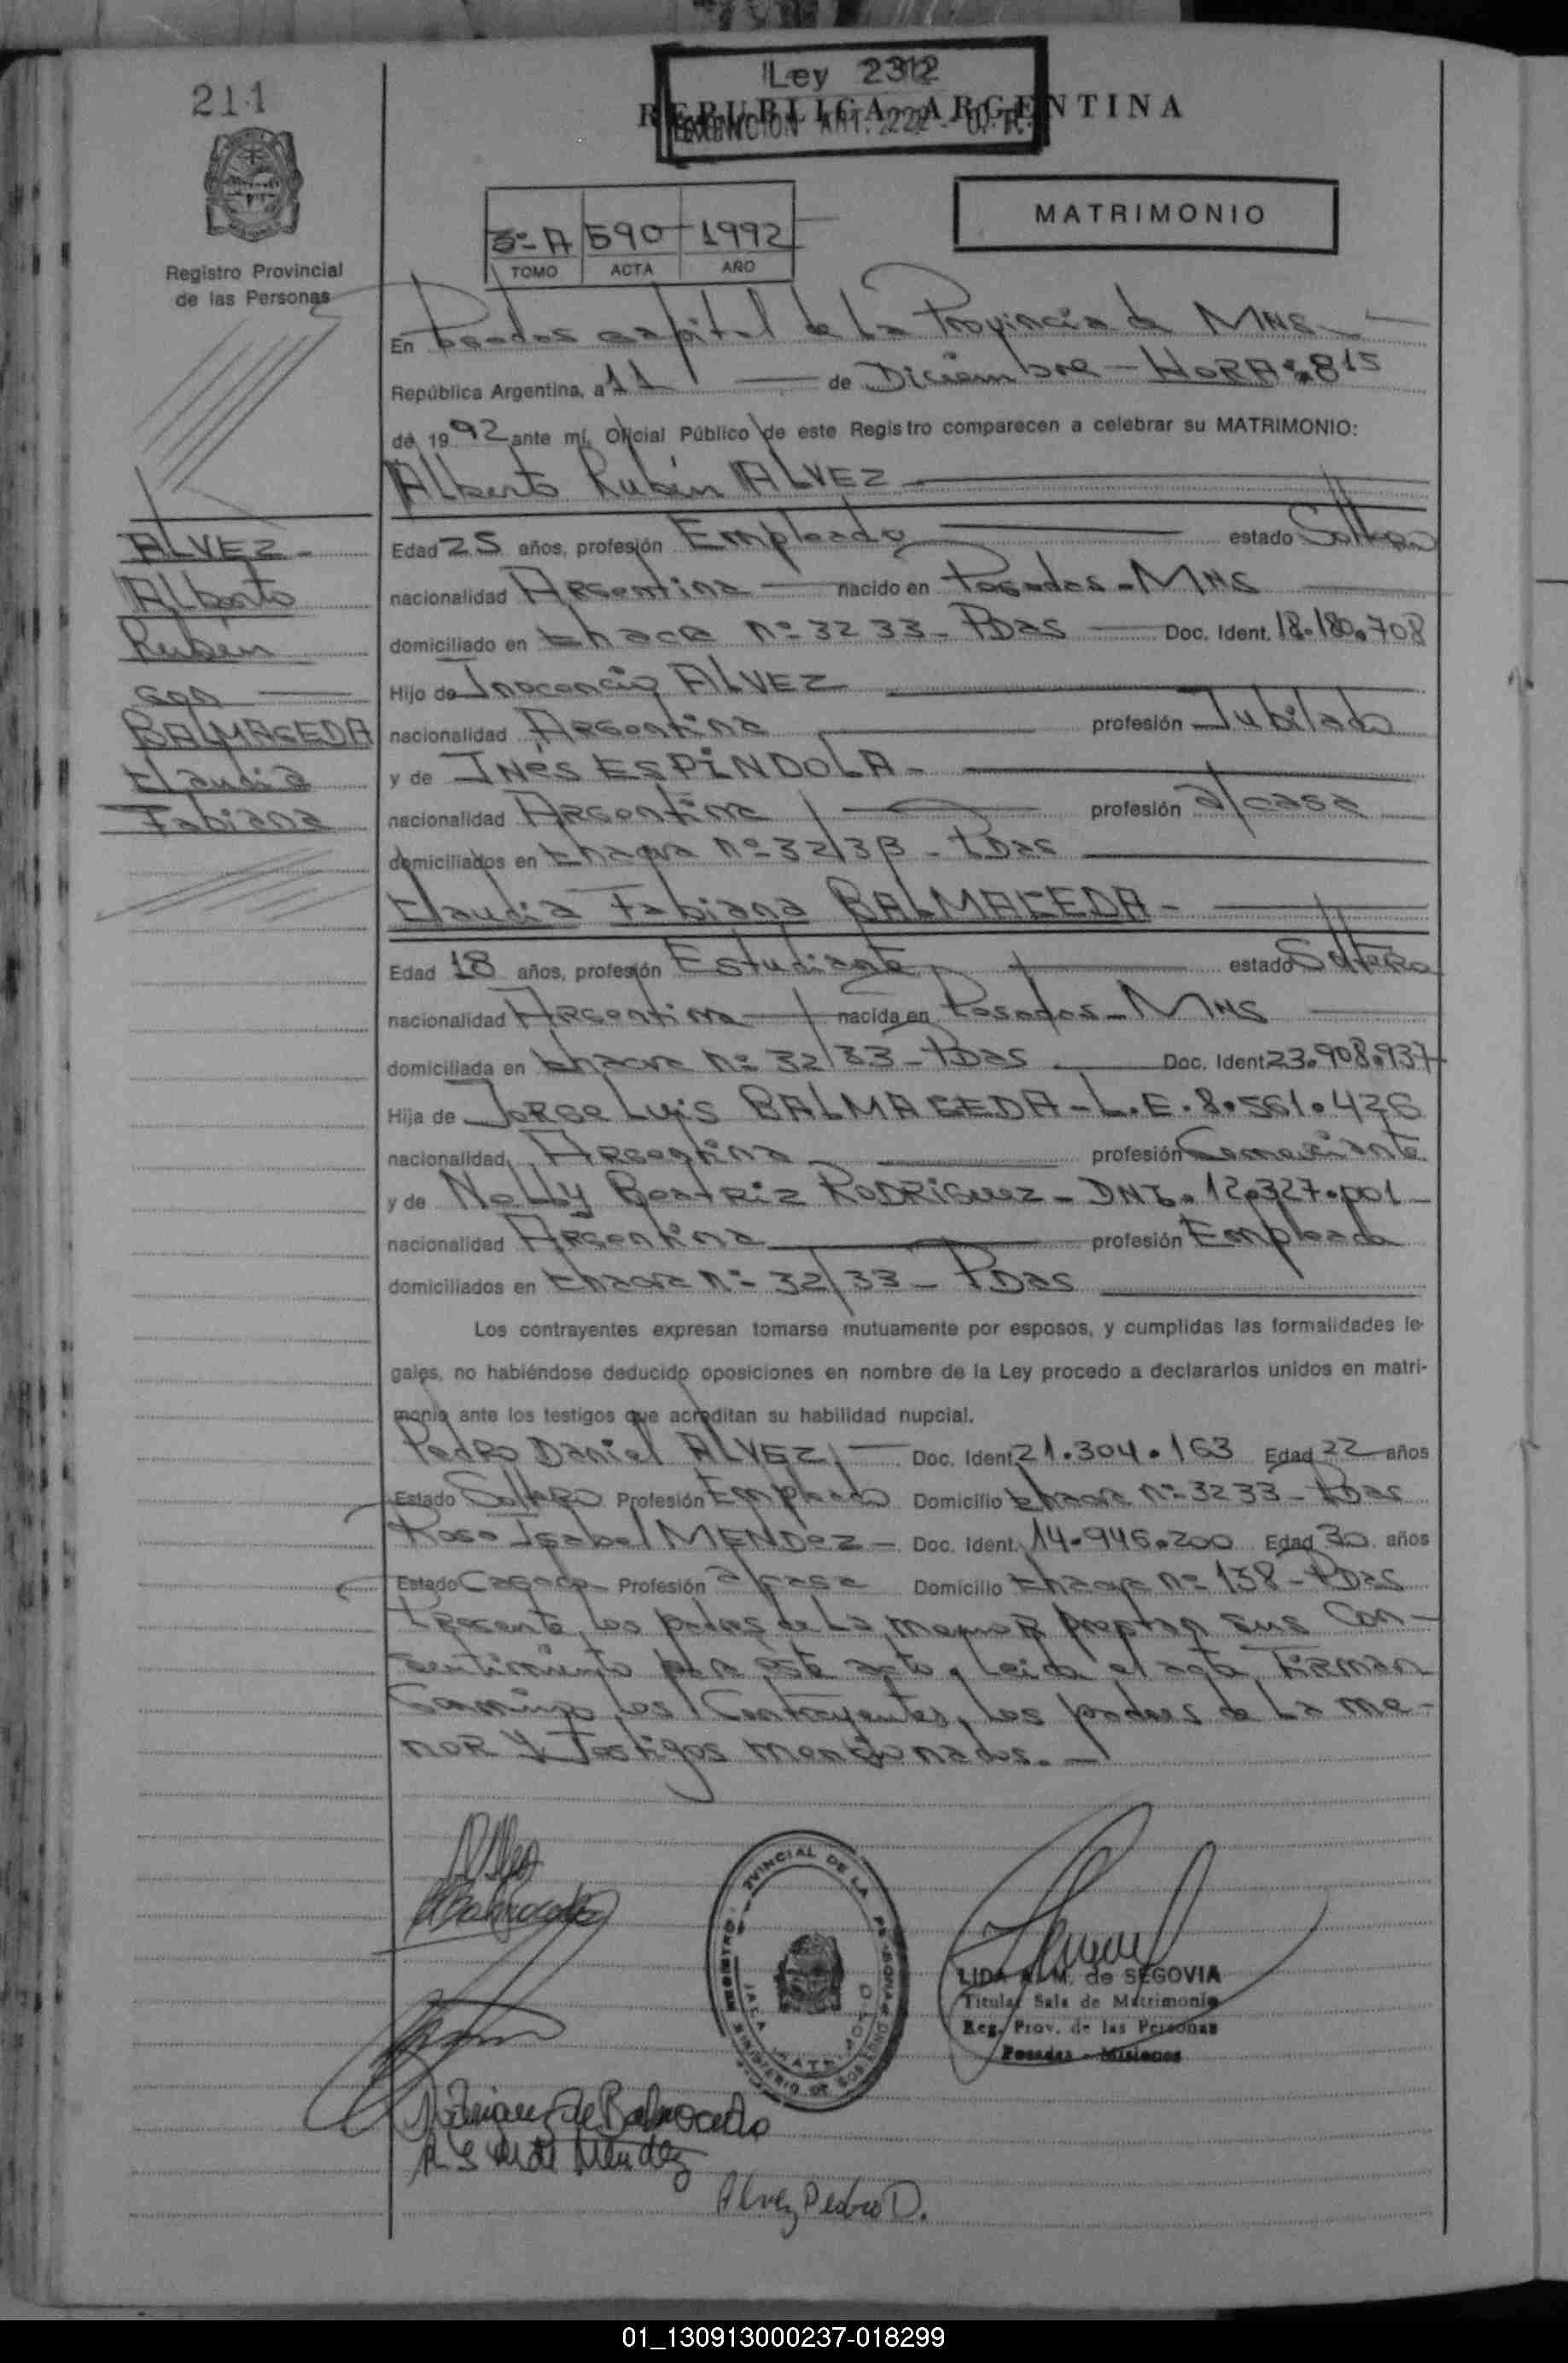 211
Ley 2312
REPUBLICA ARGENTINA
MATRIMONIO
3º-A 590 1992
TOMO ACTA AÑO
Registro Provincial
de las Personas
En Posadas capital de La Provincia de MNS
República Argentina, a 11 de Diciembre - HORA: 815
de 1992 ante mí, Oficial Público de este Registro comparecen a celebrar su MATRIMONIO:
Alberto Rubén ALVEZ
ALVEZ-
Alberto
Rubén
con
BALMACEDA
Claudia
Fabiana
Edad 25 años, profesión Empleado estado Soltero
nacionalidad Argentina nacido en Posadas-MNS
domiciliado en Chacra nº 32 33- PDas Doc. Ident. 18.180.708
Hijo de Inocencio ALVEZ
nacionalidad Argentina profesión Jubilado
y de Inés ESPINDOLA-
nacionalidad Argentina profesión a/casa
domiciliados en Chacra nº 32/33- PDas
Claudia Fabiana BALMACEDA-
Edad 18 años, profesión Estudiante estado Soltera
nacionalidad Argentina nacida en Posadas-MNS
domiciliada en Chacra nº 32/33-PDas Doc. Ident 23.908.937
Hija de Jorge Luis BALMACEDA-L.E. 8.561.426
nacionalidad Argentina profesión Comerciante
y de Nelly Beatriz RODRIGUEZ-DNI. 12.327.001
nacionalidad Argentina profesión Empleada
domiciliados en Chacra nº 32/33- PDas
Los contrayentes expresan tomarse mutuamente por esposos, y cumplidas las formalidades le-
gales, no habiéndose deducido oposiciones en nombre de la Ley procedo a declararlos unidos en matri-
monio ante los testigos que acreditan su habilidad nupcial.
Pedro Daniel ALVEZ Doc. Ident 21.304.163 Edad 22 años
Estado Soltero Profesión Empleado Domicilio Chacra nº 32 33- PDas
Rosa Isabel MENDEZ- Doc. Ident. 14.946.200 Edad 30 años
Estado Casada Profesión a/casa Domicilio Chacra nº 138-PDas
Presente los padres de La menor prestan sus Con-
sentimiento para este acto, Leida el acta FIRMAN
Conmigo los Contrayentes, los padres de La me-
nor y Testigos mencionados.-
LIDA A. M. de SEGOVIA
Titular Sala de Matrimonio
Reg. Prov. de las Personas
Posadas - Misiones
Rodriguez de Balmaceda
Alvez Pedro D.
01_130913000237-018299